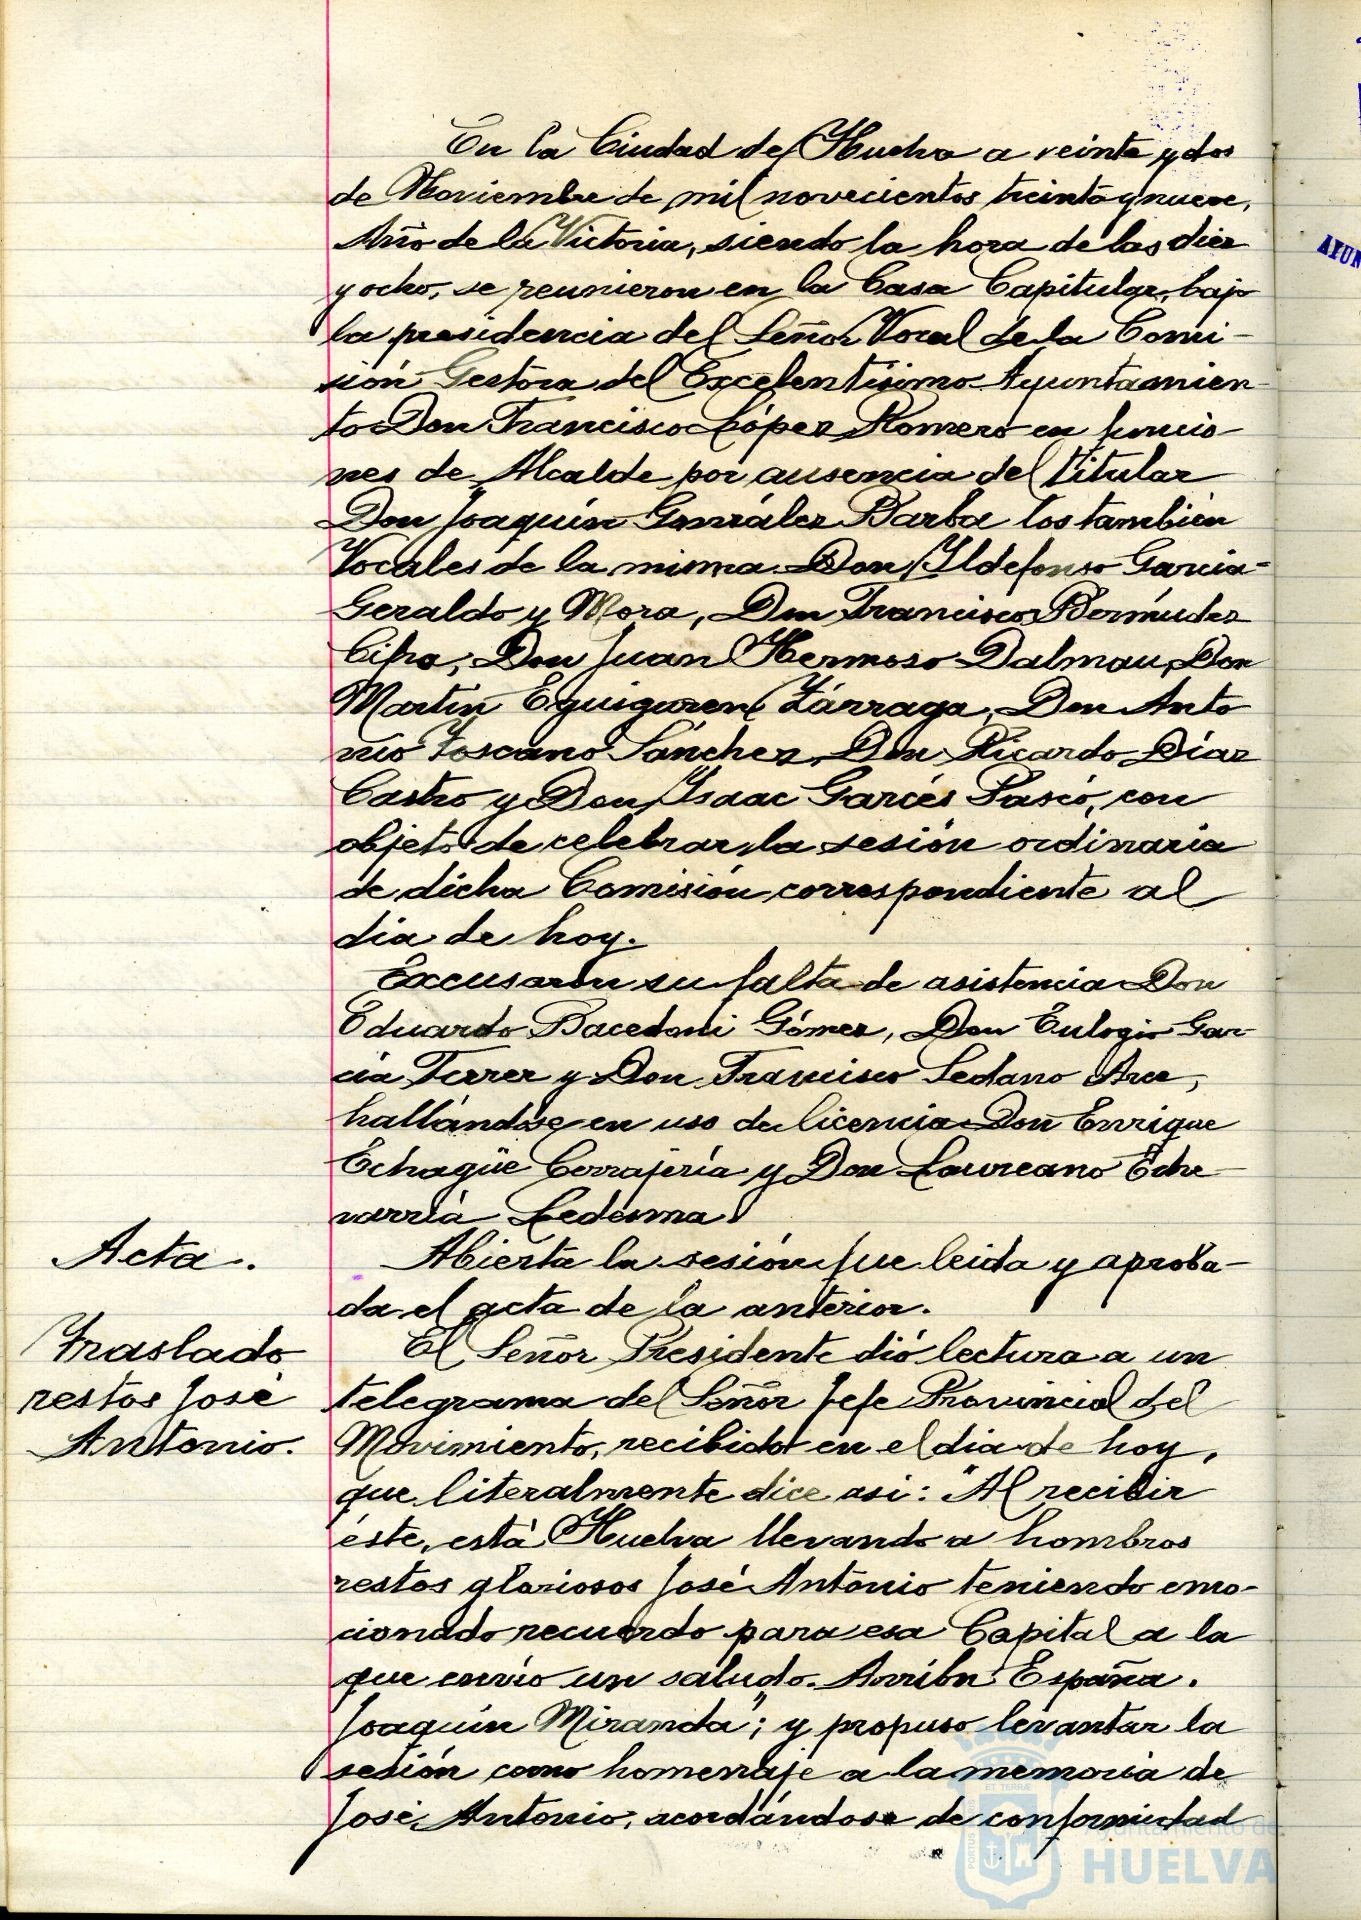 En la Ciudad de Huelva a veinte y dos
de Noviembre de mil novecientos treinta y nueve,
Año de la Victoria, siendo la hora de las diez
y ocho, se reunieron en la Casa Capitular, bajo
la presidencia del Señor Vocal de la Comi-
sión Gestora del Excelentísimo Ayuntamien-
to Don Francisco López Romero en funcio-
nes de Alcalde por ausencia del Titular
Don Joaquín González Barba los también
Vocales de la misma Don Ildefonso Garcia-
Geraldo y Mora, Don Francisco Bermúdez
Cifra, Don Juan Hermoso Dalmau, Don
Martín Eguiguren Zárraga, Don Anto
nio Toscano Sánchez, Don Ricardo Díaz
Castro y Don Isaac Garcés Pasió, con
objeto de celebrar la sesión ordinaria
de dicha Comisión correspondiente al
dia de hoy.
Excusaron su falta de asistencia Don
Eduardo Bacedoni Gómez, Don Eulogio Gar-
cía Ferrer y Don Francisco Sedano Arce,
hallándose en uso de licencia Don Enrique
Echagüe Cerrajería y Don Laureano Eche
varría Ledesma.
Acta.
Abierta la sesión fue leida y aproba-
da el acta de la anterior.
Traslado
restos José
Antonio.
El Señor Presidente dió lectura a un
telegrama del Señor Jefe Provincial del
Movimiento, recibido en el dia de hoy,
que literalmente dice asi: "Al recibir
éste, está Huelva llevando a hombros
restos gloriosos José Antonio teniendo emo-
cionado recuerdo para esa Capital a la
que envío un saludo. Arriba España.
Joaquín Miranda"; y propuso levantar la
sesión como homenaje a la memoria de
José Antonio, acordándose de conformidad
Ayuntamiento de
HUELVA
AYUN